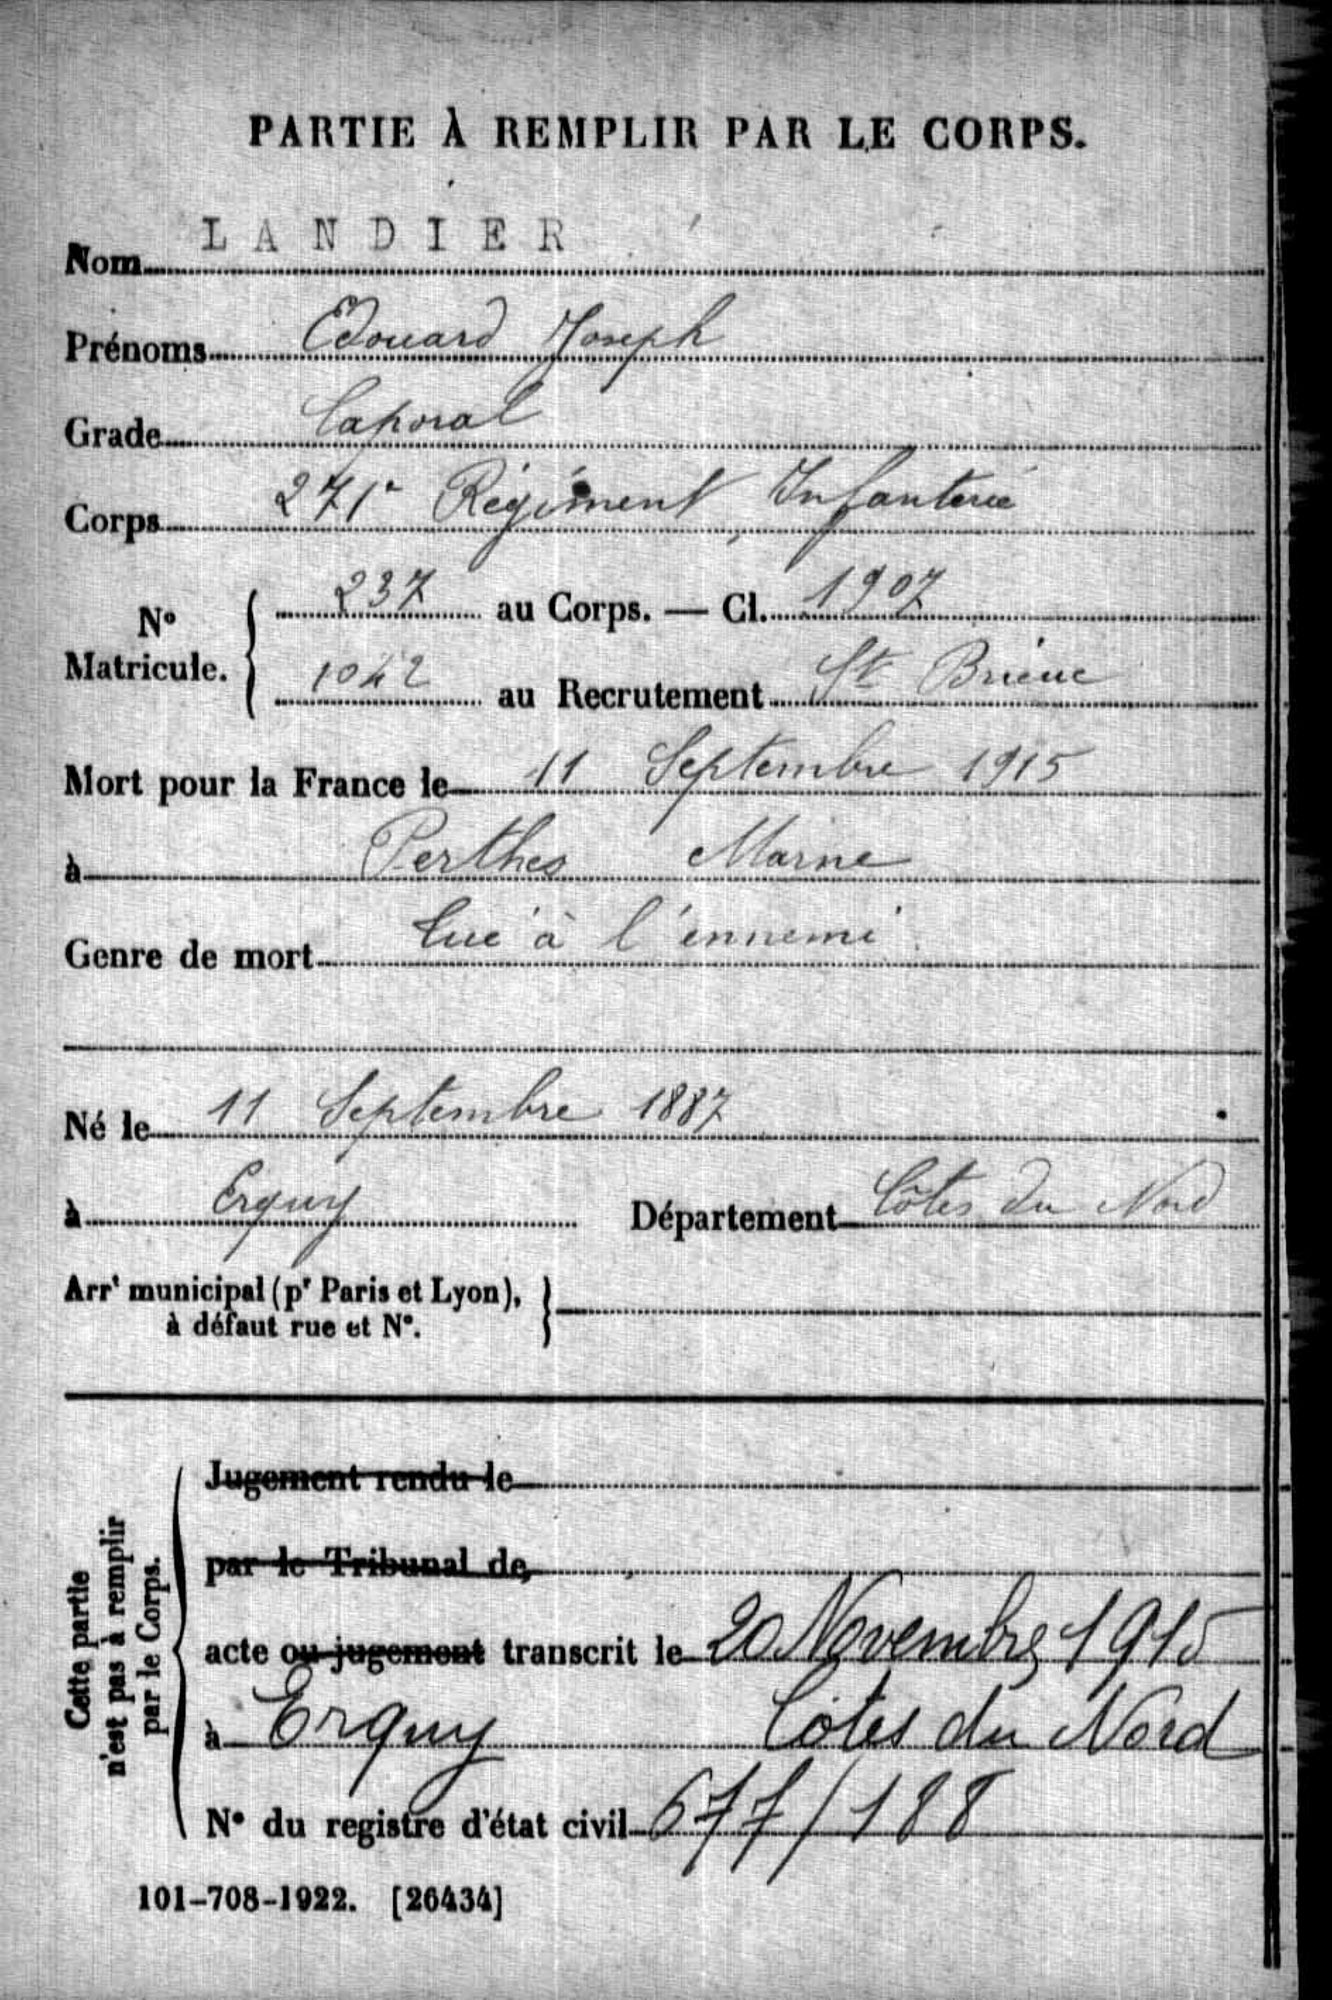 PARTIE À REMPLIR PAR LE CORPS.
Nom LANDIER
Prénoms Edouard Joseph
Grade Caporal
Corps 271e Régiment Infanterie
No Matricule. { 237 au Corps. — Cl. 1907
1042 au Recrutement St Brieuc
Mort pour la France le 11 Septembre 1915
à Perthes Marne
Genre de mort tué à l'ennemi
Né le 11 Septembre 1887
à Erquy Département Côtes du Nord
Arrt municipal (pr Paris et Lyon), }
à défaut rue et No.
Cette partie n'est pas à remplir par le Corps.
Jugement rendu le
par le Tribunal de
acte ou jugement transcrit le 20 Novembre 1915
à Erquy Côtes du Nord
No du registre d'état civil 677/188
101-708-1922. [26434]